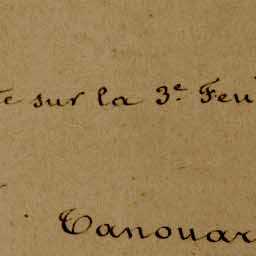 te sur la 3.e Feu
Canouar